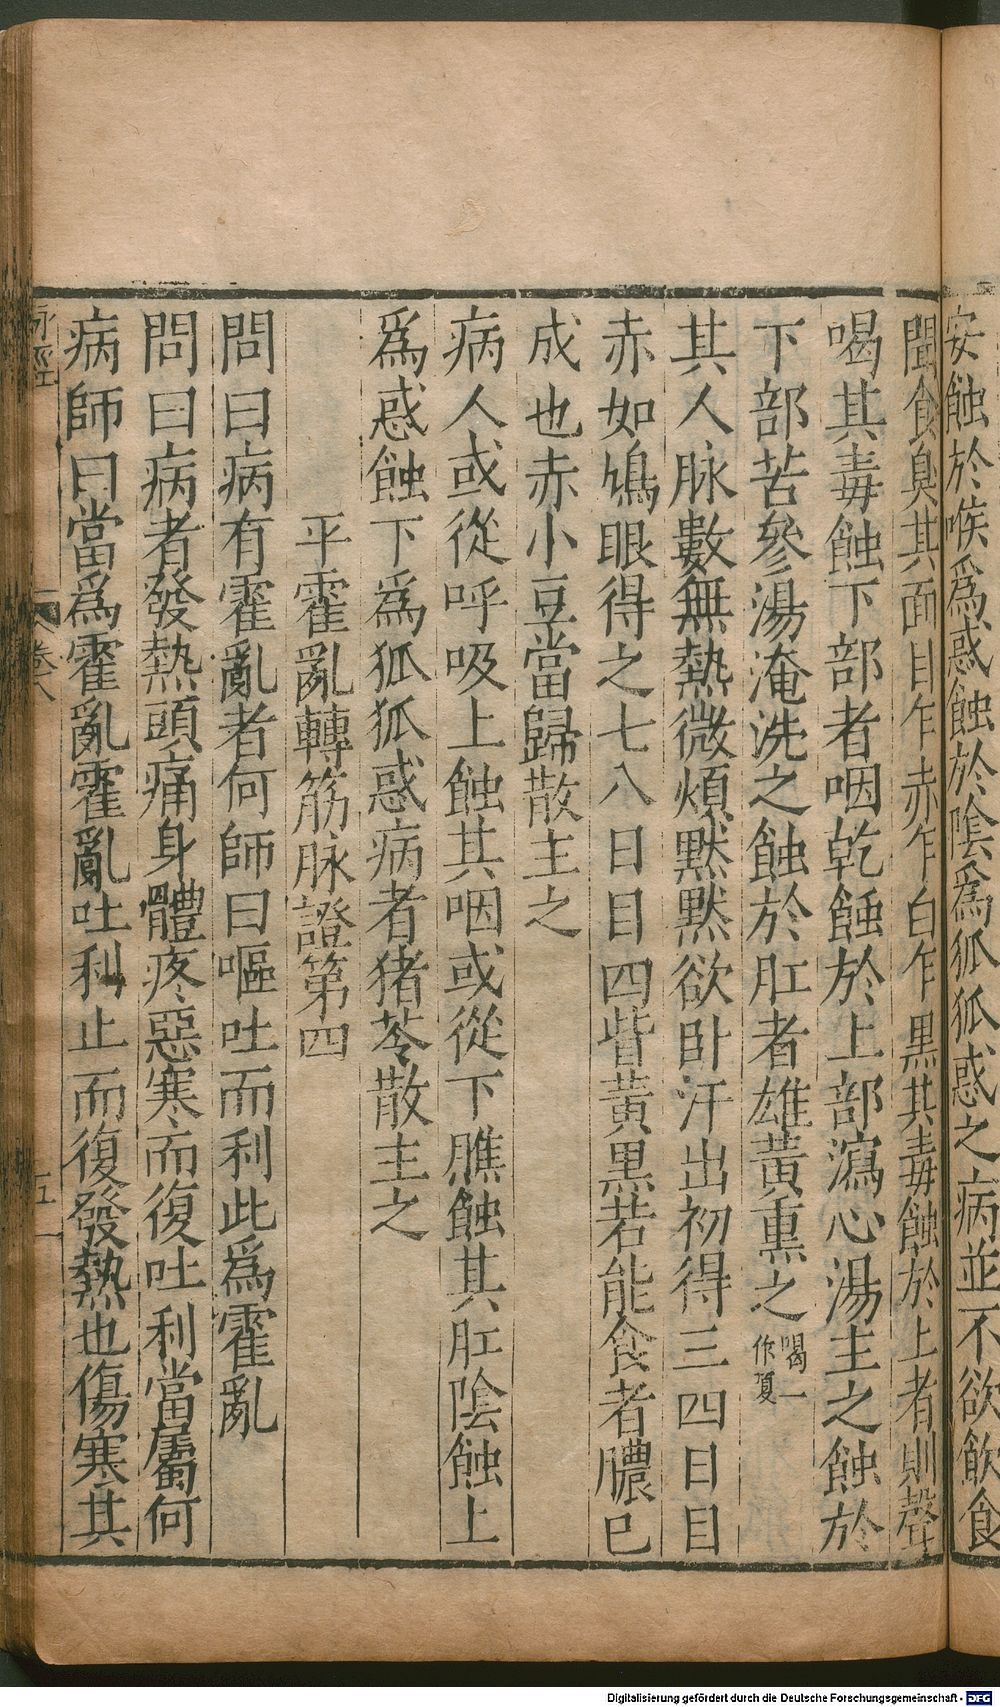 安蝕於喉爲惑蝕於陰爲狐狐惑之病並不欲飲食
聞食臭其面目乍赤乍白乍黒其毒蝕於上者則聲
喝其毒蝕下部者咽乾蝕於上部瀉心湯主之蝕於
下部苦參湯淹洗之蝕於肛者雄黃熏之喝一作嗄
其人脉數無熱微煩黙黙欲卧汗出初得三四日目
赤如鳩眼得之七八日目四眥黃黒若能食者膿已
成也赤小豆當歸散主之
病人或從呼吸上蝕其咽或從下膲蝕其肛陰蝕上
爲惑蝕下爲狐狐惑病者猪苓散主之
平霍亂轉筋脉證第四
問曰病有霍亂者何師曰嘔吐而利此爲霍亂
問曰病者發熱頭痛身體疼惡寒而復吐利當屬何
病師曰當爲霍亂霍亂吐利止而復發熱也傷寒其
卷八
Digitalisierung gefördert durch die Deutsche Forschungsgemeinschaft - DFG